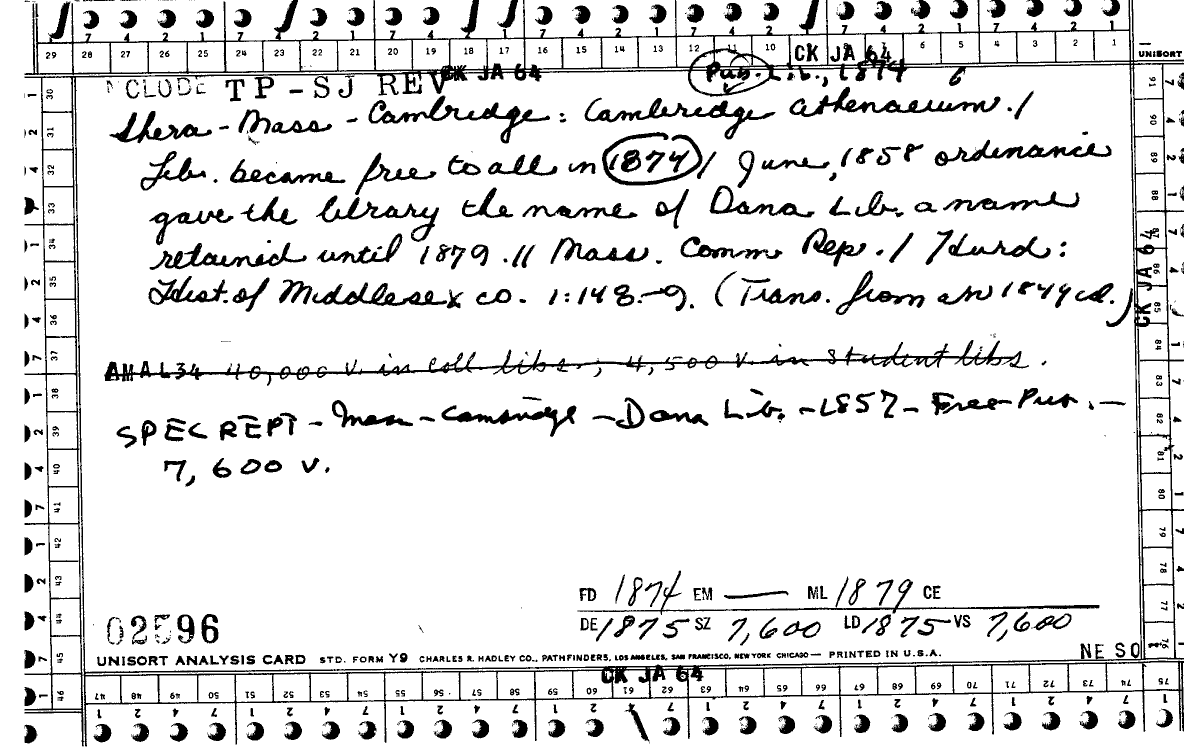 29 28 27 26 25 24 23 22 21 20 19 18 17 16 15 14 13 12 11 10 6 5 4 3 2 1 UNISORT
CK JA 64
NCLUDE TP-SJ REV CK JA 64 Pub. Lib., 1874 6
Shera - Mass - Cambridge: Cambridge Athenaeum. /
Lib. became free to all in 1874 / June, 1858 ordinance
gave the library the name of Dana Lib. a name
retained until 1879. // Mass. Comm Rep. / Hurd:
Hist. of Middlesex co. 1:148-9. (Trans. from an 1849 cd.)
CK JA 64
AMAL34 40,000 v. in coll libs.; 4,500 v. in student libs.
SPEC REPT - Mass - Cambridge - Dana Lib. - 1857 - Free Pub. -
7,600 v.
FD 1874 EM — ML 1879 CE
DE 1875 SZ 7,600 LD 1875 VS 7,600
02596
UNISORT ANALYSIS CARD STD. FORM Y9 CHARLES R. HADLEY CO., PATHFINDERS, LOS ANGELES, SAN FRANCISCO, NEW YORK CHICAGO — PRINTED IN U.S.A.
NE SO
CK JA 64
47 48 49 50 51 52 53 54 55 56 57 58 59 60 61 62 63 64 65 66 67 68 69 70 71 72 73 74 75